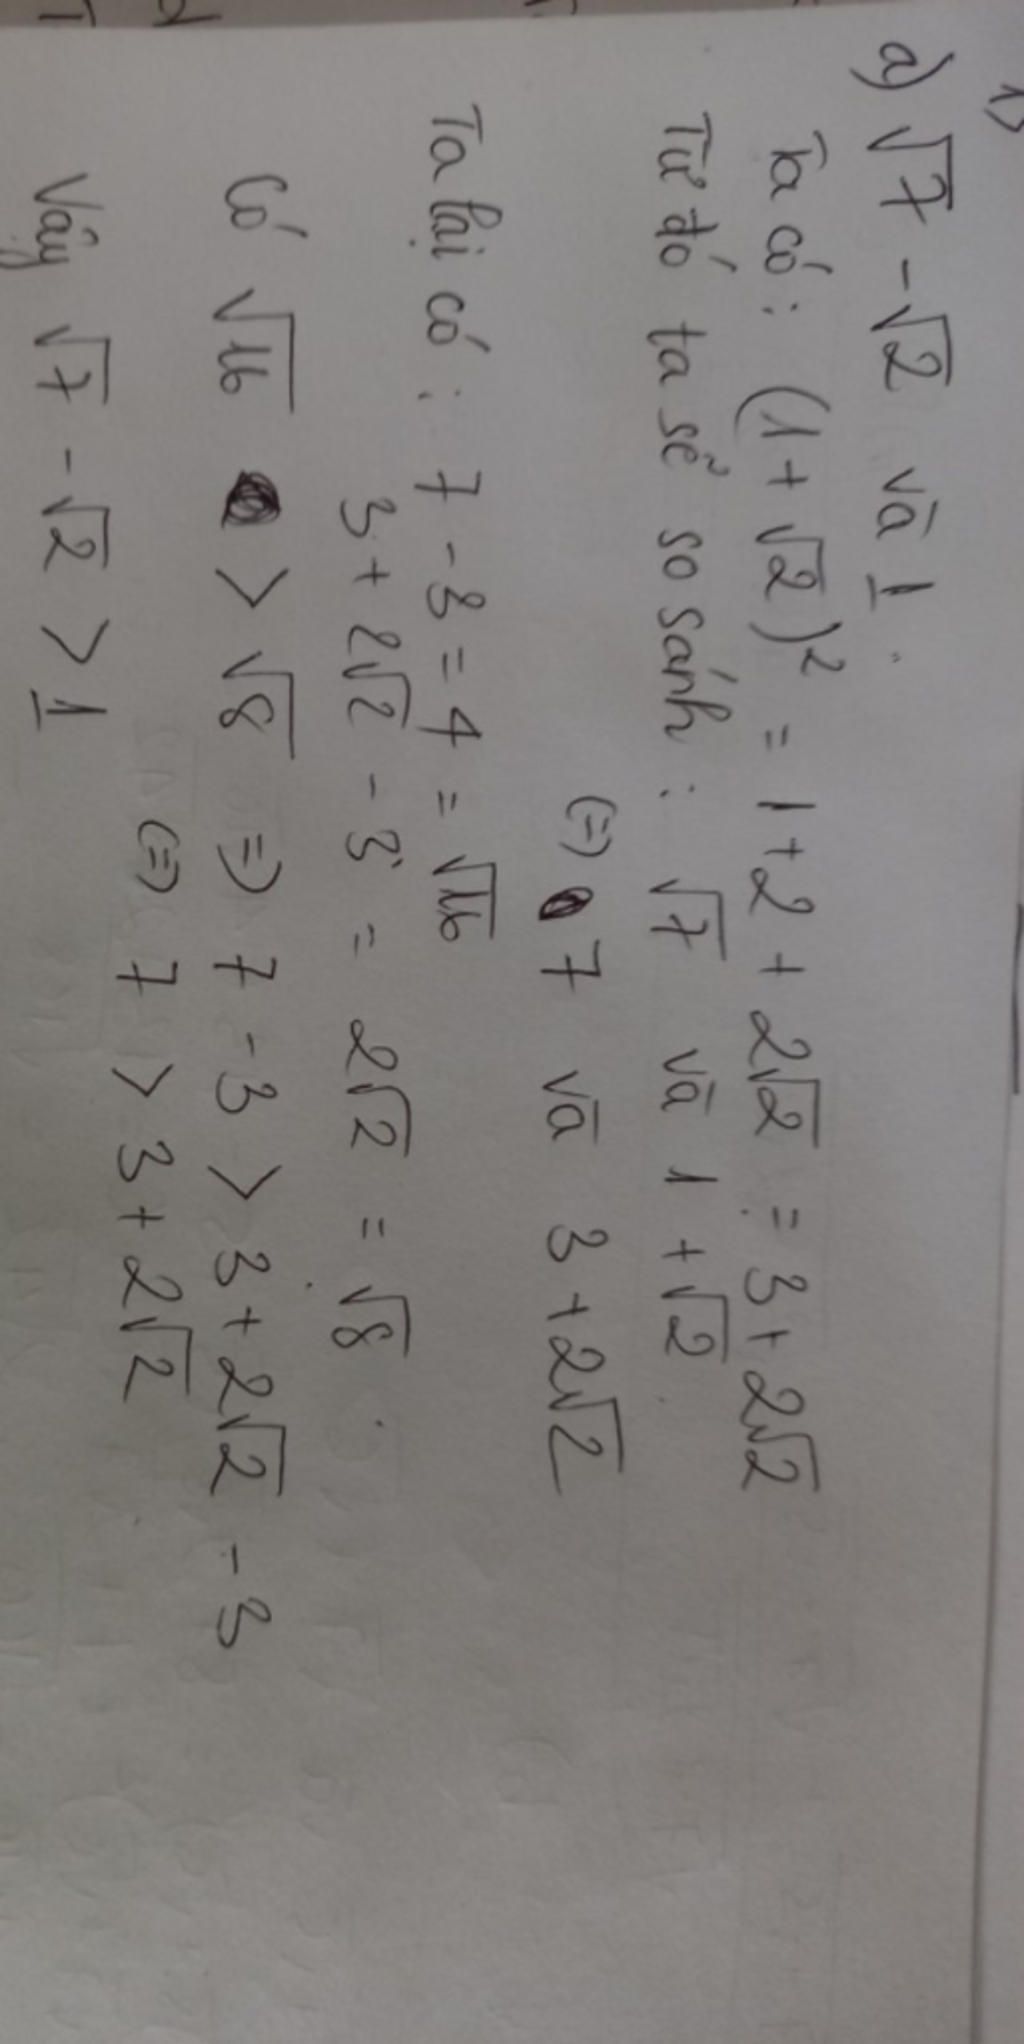 1)
a) √7 - √2 và 1.
Ta có: (1 + √2)² = 1 + 2 + 2√2 = 3 + 2√2
Từ đó ta sẽ so sánh: √7 và 1 + √2
(=) 7 và 3 + 2√2
Ta lại có: 7 - 3 = 4 = √16
3 + 2√2 - 3 = 2√2 = √8
Có √16 > √8 => 7 - 3 > 3 + 2√2 - 3
(=) 7 > 3 + 2√2
Vậy √7 - √2 > 1